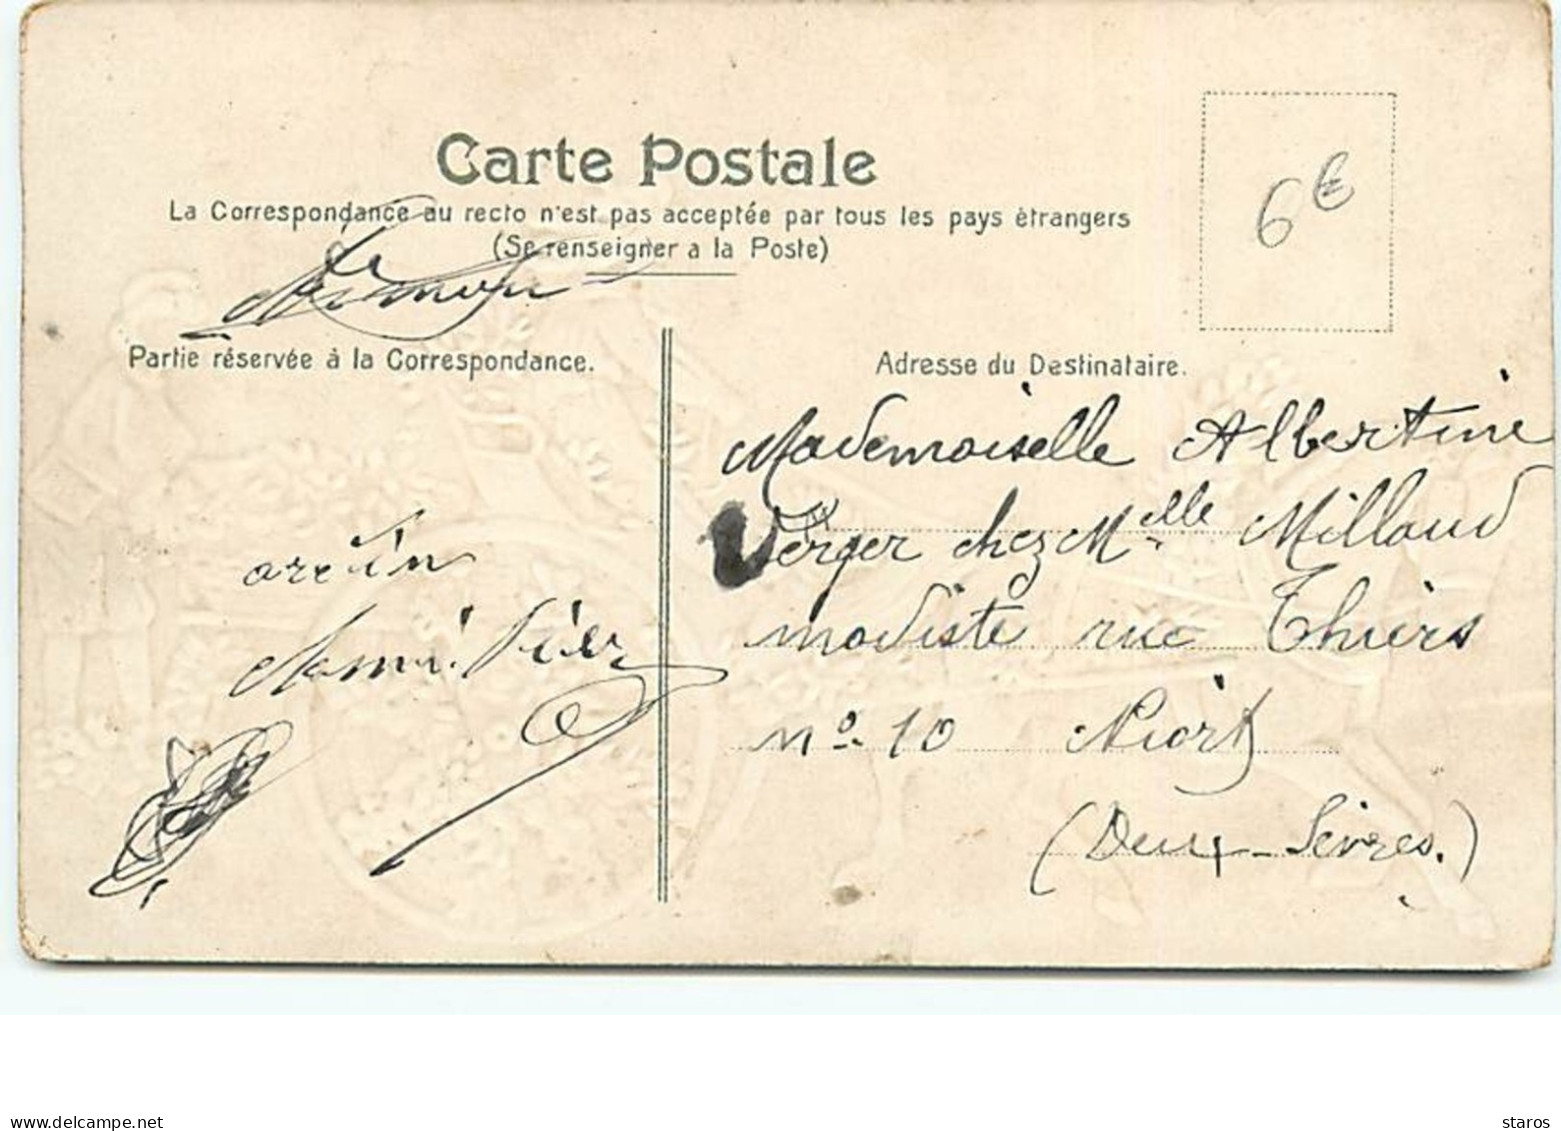 Carte Postale
La Correspondance au recto n'est pas acceptée par tous les pays étrangers
(Se renseigner a la Poste)
6€
Partie réservée à la Correspondance.
Adresse du Destinataire.
Mademoiselle Albertine
Verger chez Melle Millaud
modiste rue Thiers
no 10 Niort
(Deux-Sèvres.)
www.delcampe.net
staros